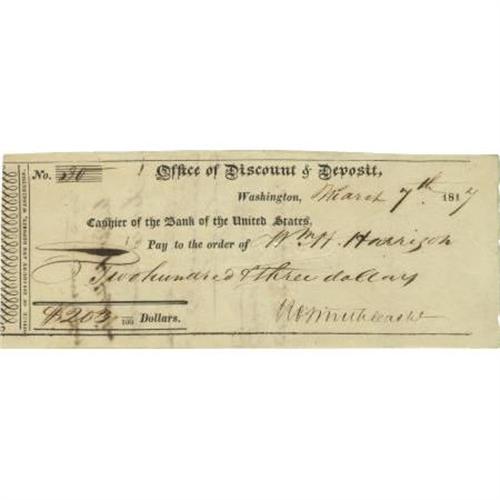 No. 230
Office of Discount & Deposit,
Washington, March 7th 1817
Cashier of the Bank of the United States,
Pay to the order of Wm. H. Harrison
Two hundred & three dollars
$203 /100 Dollars.
OFFICE OF DISCOUNT AND DEPOSIT, WASHINGTON.